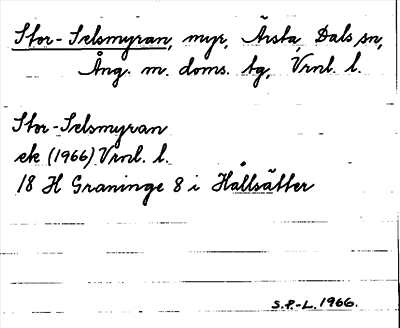 Stor-Selsmyran, myr, Ärsta, Dals sn,
Ång. m. doms. tg, Vrnl. l.
Stor-Selsmyran
ek (1966) Vrnl. l.
18 H Graninge 8 i Hållsätter
S.P.-L. 1966.